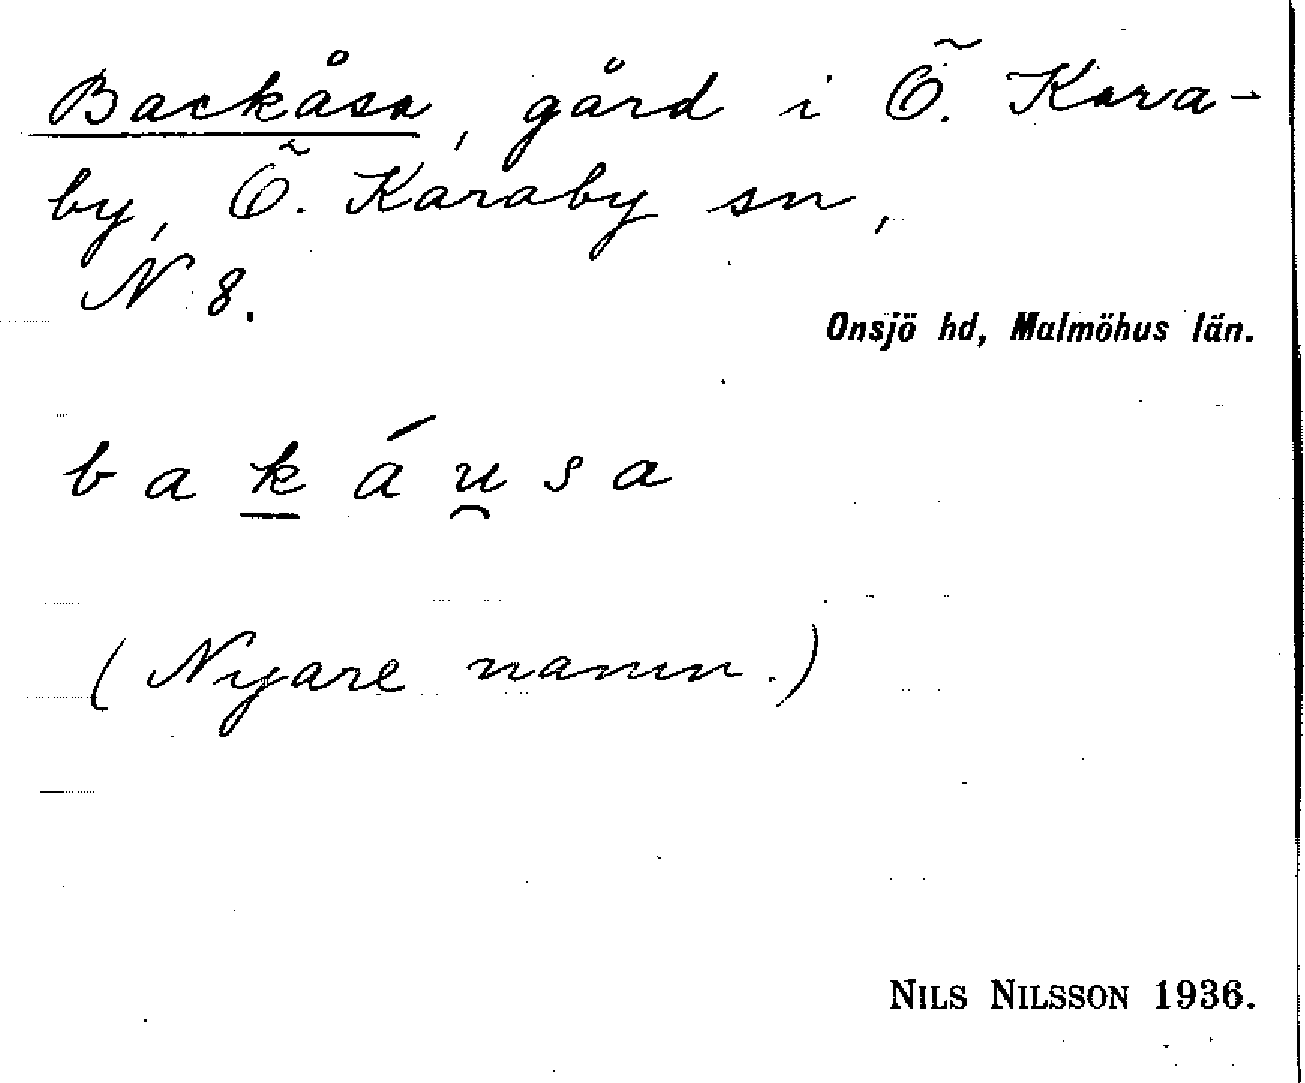 Backåsa, gård i Ö. Kara-
by, Ö. Karaby sn,
N 8.
Onsjö hd, Malmöhus län.
b a k á u̯ s a
(Nyare namn.)
NILS NILSSON 1936.